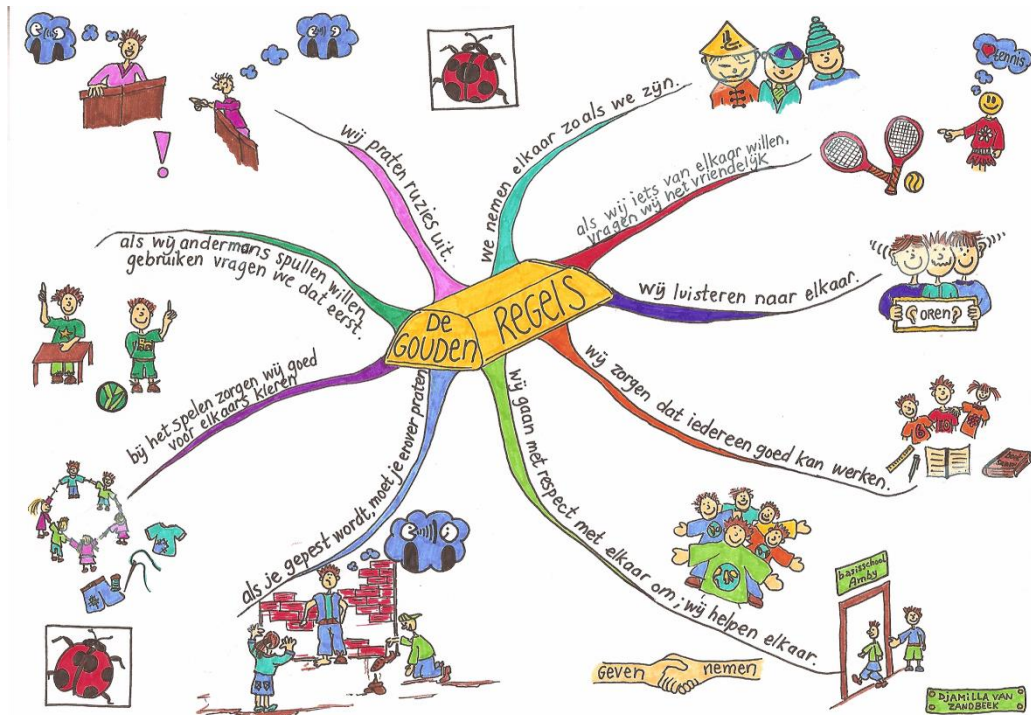 De
GOUDEN
REGELS
we nemen elkaar zoals we zijn.
tennis
als wij iets van elkaar willen,
vragen wij het vriendelijk
wij luisteren naar elkaar.
OREN
wij zorgen dat iedereen goed kan werken.
6
10
wij gaan met respect met elkaar om; wij helpen elkaar.
basisschool
Amby
Geven nemen
DJAMILLA VAN
ZANDBEEK
als je gepest wordt, moet je erover praten
bij het spelen zorgen wij goed
voor elkaars kleren
als wij andermans spullen willen
gebruiken vragen we dat eerst.
wij praten ruzies uit.
!